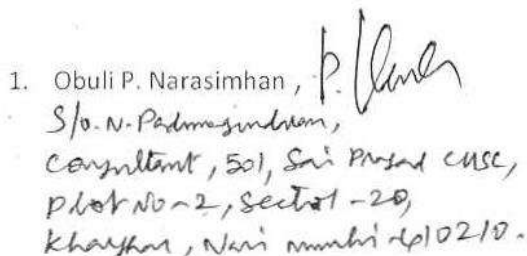 1. Obuli P. Narasimhan, P.
S/o. N. Padmasundram,
Consultant, 501, Sai Prasad CHSC,
Plot No-2, Sector-20,
Kharghar, Navi Mumbai-410210.